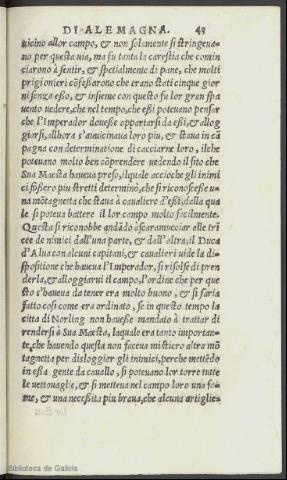 DI ALEMAGNA. 49
uicino allor campo, & non solamente si stringeua-
no per questa uia, ma fu tanta la carestia che comin
ciarono à sentir, & spetialmente di pane, che molti
prigionieri cōfessarono che erano stati cinque gior
ni senza esso, & insieme con questo fu lor gran spa
uento uedere, che nel tempo, che essi poteuano pensar
che l'Imperador douesse appartarsi da essi, & allog
giarsi, allhora s'auuicinaua loro piu, & staua in cā
pagna con determinatione di cacciarne loro, ilche
poteuano molto ben cōprendere uedendo il sito che
Sua Maesta haueua preso, ilquale accioche gli inimi
ci fossero piu stretti determinò, che si riconoscesse u-
na mōtagnetta che staua à caualiere d'essi, dalla qua
le si poteua battere il lor campo molto facilmente.
Questa si riconobbe andādo à scaramucciar alle tri
cee de nimici dall'una parte, & dall'altra; il Duca
d'Alua con alcuni capitani, & caualieri uide la di-
spositione che haueua l'Imperador, si risolse di pren
derla, & alloggiarui il campo, l'ordine che per que
sto s'haueua da tener era molto buono, & si saria
fatto cosi come era ordinato, se in questo tempo la
citta di Norling non hauesse mandato à trattar di
rendersi à Sua Maesta, laquale era tanto importan-
te, che hauendo questa non faceua mistiero altra mō
tagnetta per disloggiar gli inimici, perche mettēdo
in essa gente da cauallo, si poteuano lor torre tutte
le uettouaglie, & si metteua nel campo loro una fa-
me, & una necessita piu braua, che alcuna artiglie-
Biblioteca de Galicia